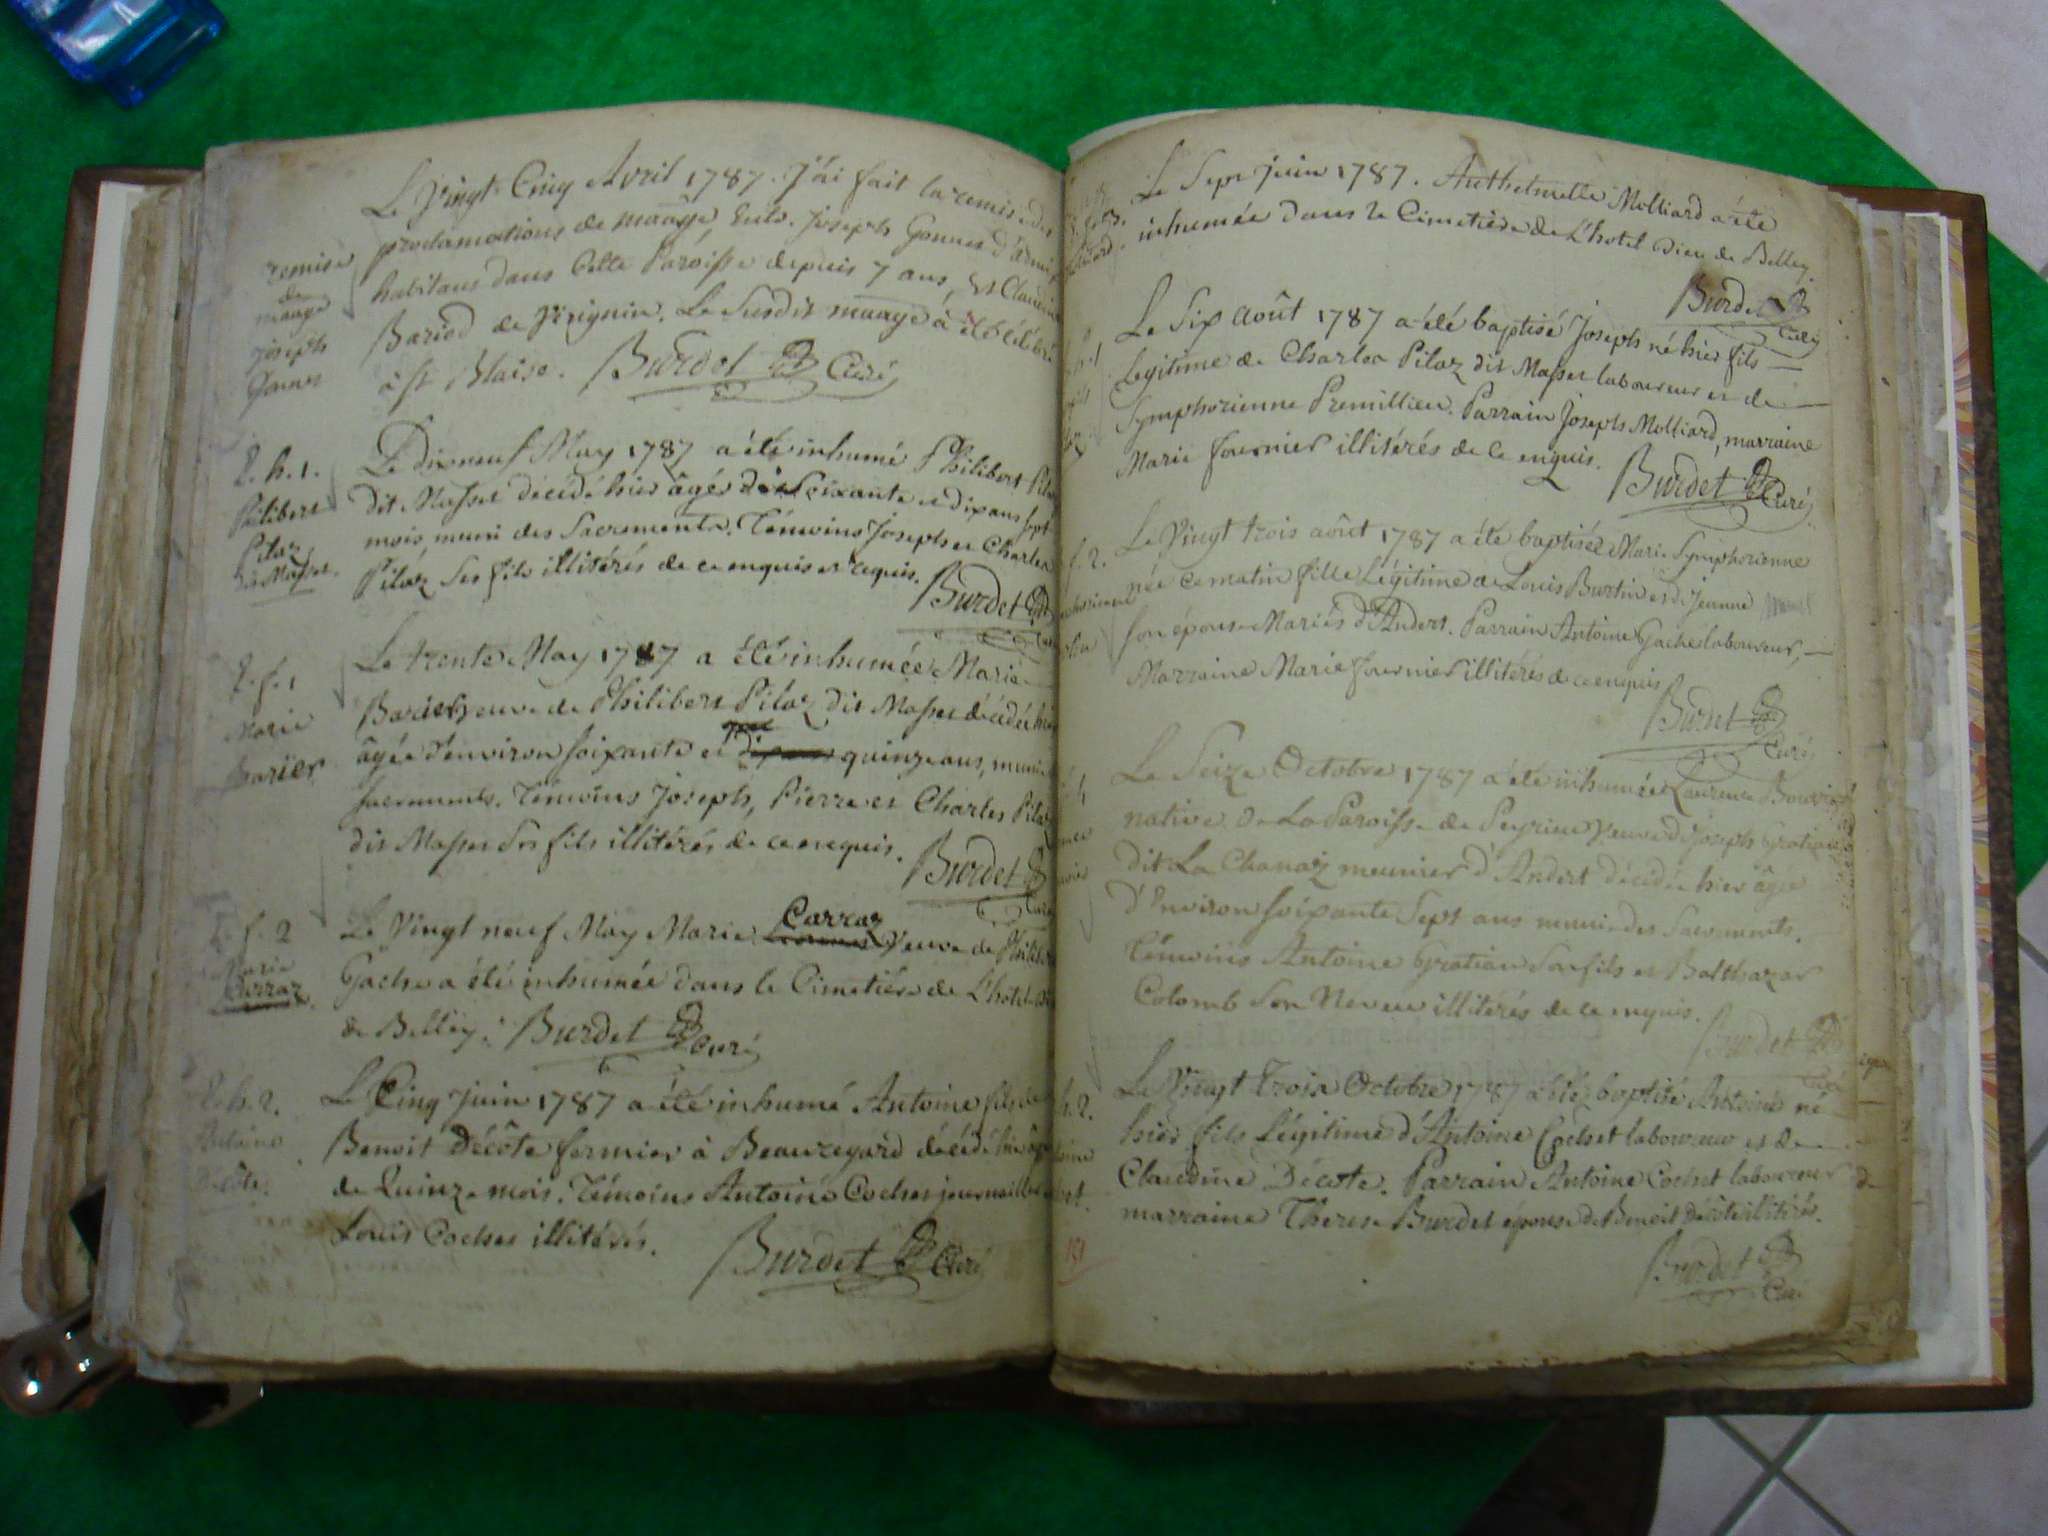 Le Vingt Cinq Avril 1787. J'ai fait la remise des
proclamations de maage, entre Joseph Gonnet d'
habitans dans Cette Paroisse depuis 7 ans, Et Claudine
Bariod de Virignin. Le Susdit maage a été célébré
à st Blaise. Burdet Curé
remise
de
maage
joseph
Le dixneuf May 1787 a été inhumé Philibert Pilaz
dit Masset décédé hier âgér de Soixante et dix ans sept
mois muni des Sacrements. Témoins Joseph et Charles
Pilaz Ses fils illitérés de ce enquis et requis.
Burdet
S. h. 1.
Philibert
Pilaz
dit Masset.
Le trente May 1787 a été inhumée Marie
Barier veuve de Philibert Pilaz dit Masset décédée hier
âgée d'environ soixante et quinze ans, munie
sacrements. Témoins Joseph, Pierre et Charles Pilaz
dit Masset Ses fils illitérés de ce enquis.
Burdet
S. f. 1
Marie
barier
Le Vingt neuf May Marie Carraz Veuve de Philibert
Gache a été inhumée dans le Cimetière de L'hotel
de Belley. Burdet Curé
S. f. 2
Marie
Carraz
Le Cinq juin 1787 a été inhumé Antoine fils de
Benoit Décôte fermier à Beauregard décédé hier âgé
de Quinze mois. Témoins Antoine Cochet journaillier
Louis Cochet illitérés.
Burdet Curé
S. h. 2.
Antoine
Décôte.
Le Sept juin 1787. Anthelmette Molliard a été
inhumée dans le Cimetière de L'hotel Dieu de Belley.
Burdet
Curé
Le Six août 1787 a été baptisé Joseph né hier fils
Legitime de Charles Pilaz dit Masset laboureur et de
Symphorienne Premillieu. Parrain Joseph Molliard, marraine
Marie fournier illitérés de ce enquis.
Burdet Curé
Le Vingt trois août 1787 a été baptisée Marie Symphorienne
née ce matin fille Légitime de Louis Burtin et de Jeanne
son épouse Mariés d'Andert. Parrain Antoine Gache laboureur,
Marraine Marie fournier illitérés de ce enquis
Burdet
Curé
f. 2.
Le Seize Octobre 1787 a été inhumée Laurence
native de La Paroisse de Peyrieu Veuve de Joseph Gratian
dit La Chanaz meunier d'Andert décédée hier âgée
d'Environ soixante Sept ans munie des Sacrements.
Témoins Antoine Gratian Son fils et Balthazar
Colomb Son Neveu illitérés de ce enquis.
Burdet
Curé
Le Vingt Trois Octobre 1787 a été baptisé Antoine né
hier fils Légitime d'Antoine Cochet laboureur et de
Claudine Décôte. Parrain Antoine Cochet laboureur
marraine Therese Burdet épouse de Benoit Décôte illitérés.
Burdet
Curé
h. 2.
151